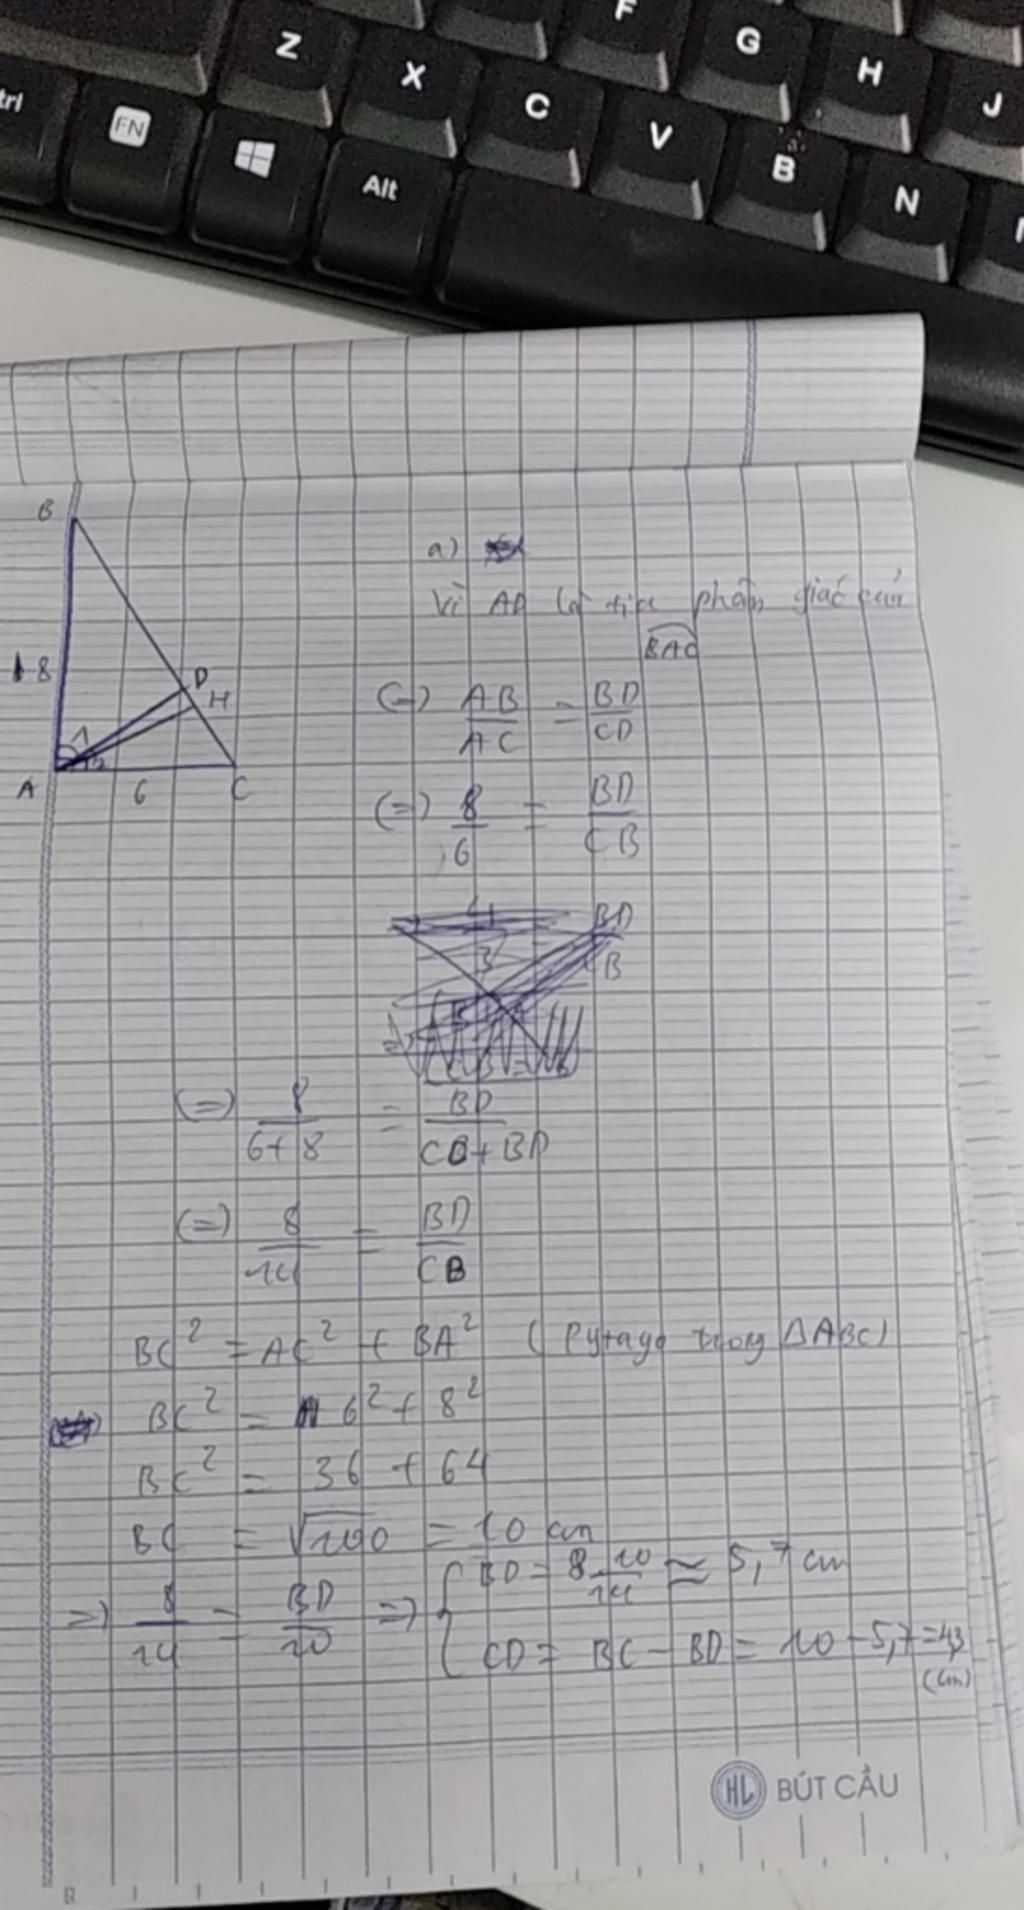 F
Z
G
X
H
C
J
trl
FN
V
B
Alt
N
B
a)
Vì AD là tia phân giác của
BAC
8
D
H
(=) AB/AC = BD/CD
1
2
A
6
C
(=) 8/6 = BD/CB
(=) 8/6+8 = BD/CB+BD
(=) 8/14 = BD/CB
BC² = AC² + BA² ( Pytago trong ΔABC)
BC² = 6² + 8²
BC² = 36 + 64
BC = √100 = 10 cm
=) 8/14 = BD/10 =) { BD = 8.10/14 ≈ 5,7 cm
CD = BC - BD = 10 - 5,7 = 4,3
(cm)
HL BÚT CẦU